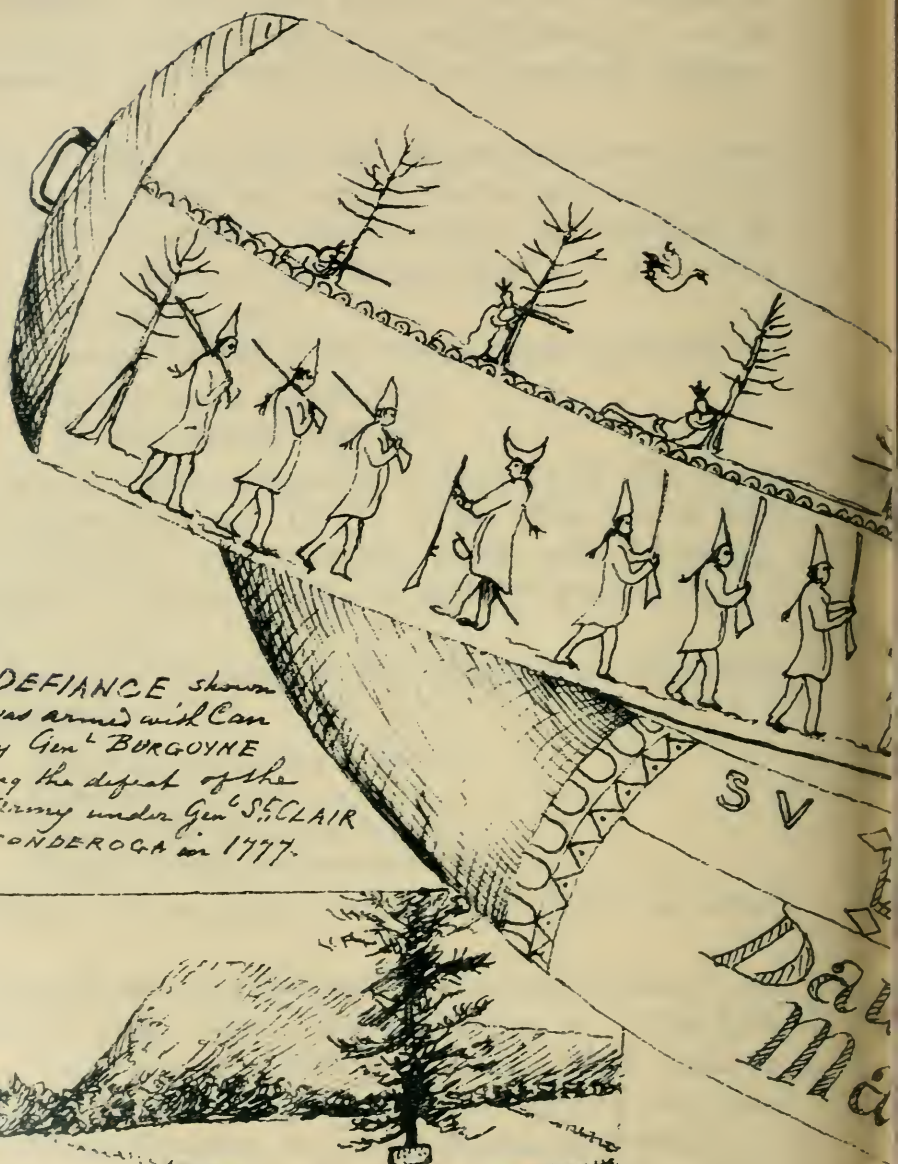 DEFIANCE shown
was armed with Can
y Genl BURGOYNE
ng the defeat of the
Army under Genl St. CLAIR
CONDEROGA in 1777.
S V
Dau
Ma